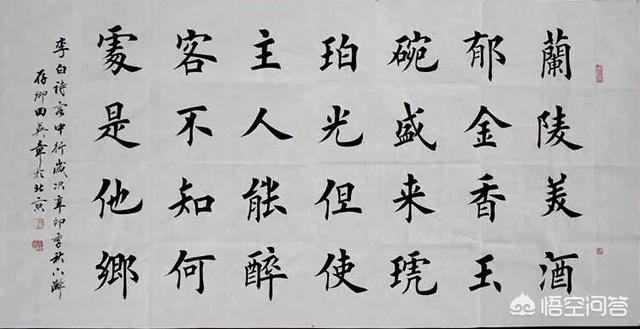 蘭陵美酒
郁金香玉
碗盛来琥
珀光但使
主人能醉
客不知何
處是他鄉
李白诗客中行歲次辛卯季秋
存卿田英章於北京
悟空问答